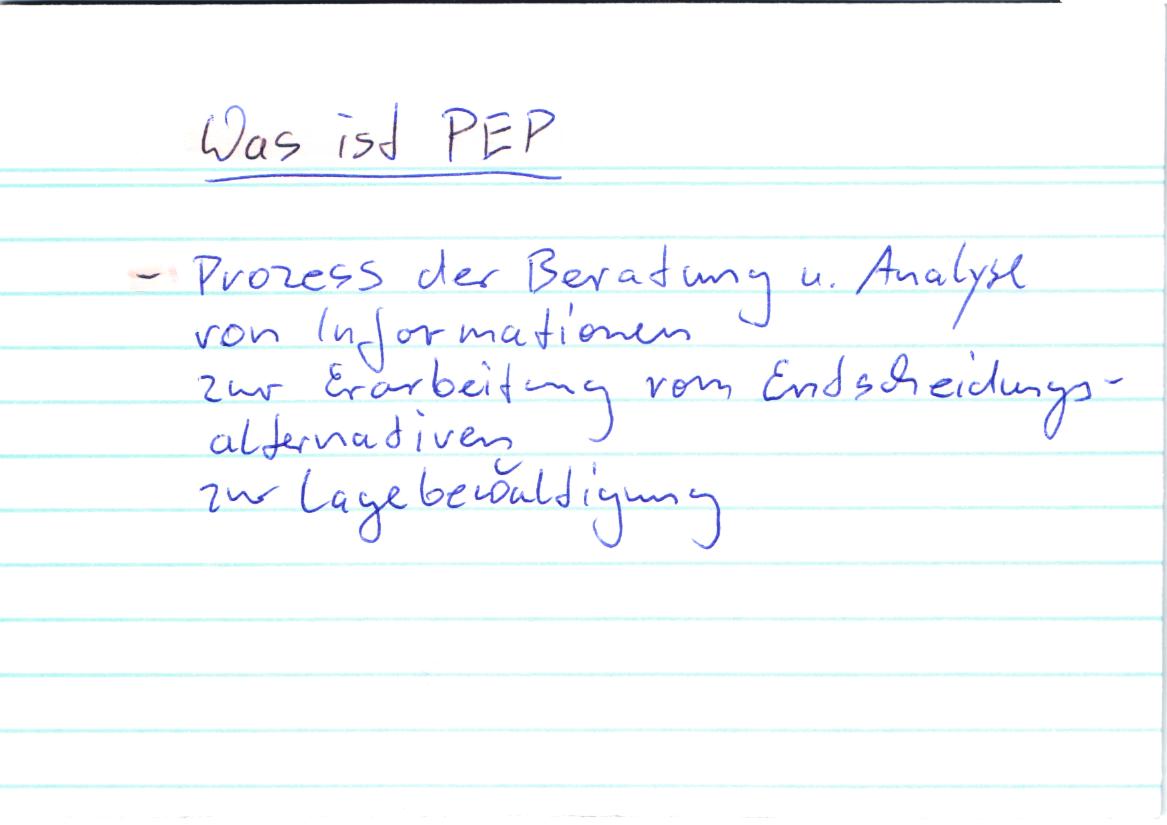 Was ist PEP
- Prozess der Beratung u. Analyse
von Informationen
zur Erarbeitung von Entscheidungs-
alternativen
zur Lagebewältigung